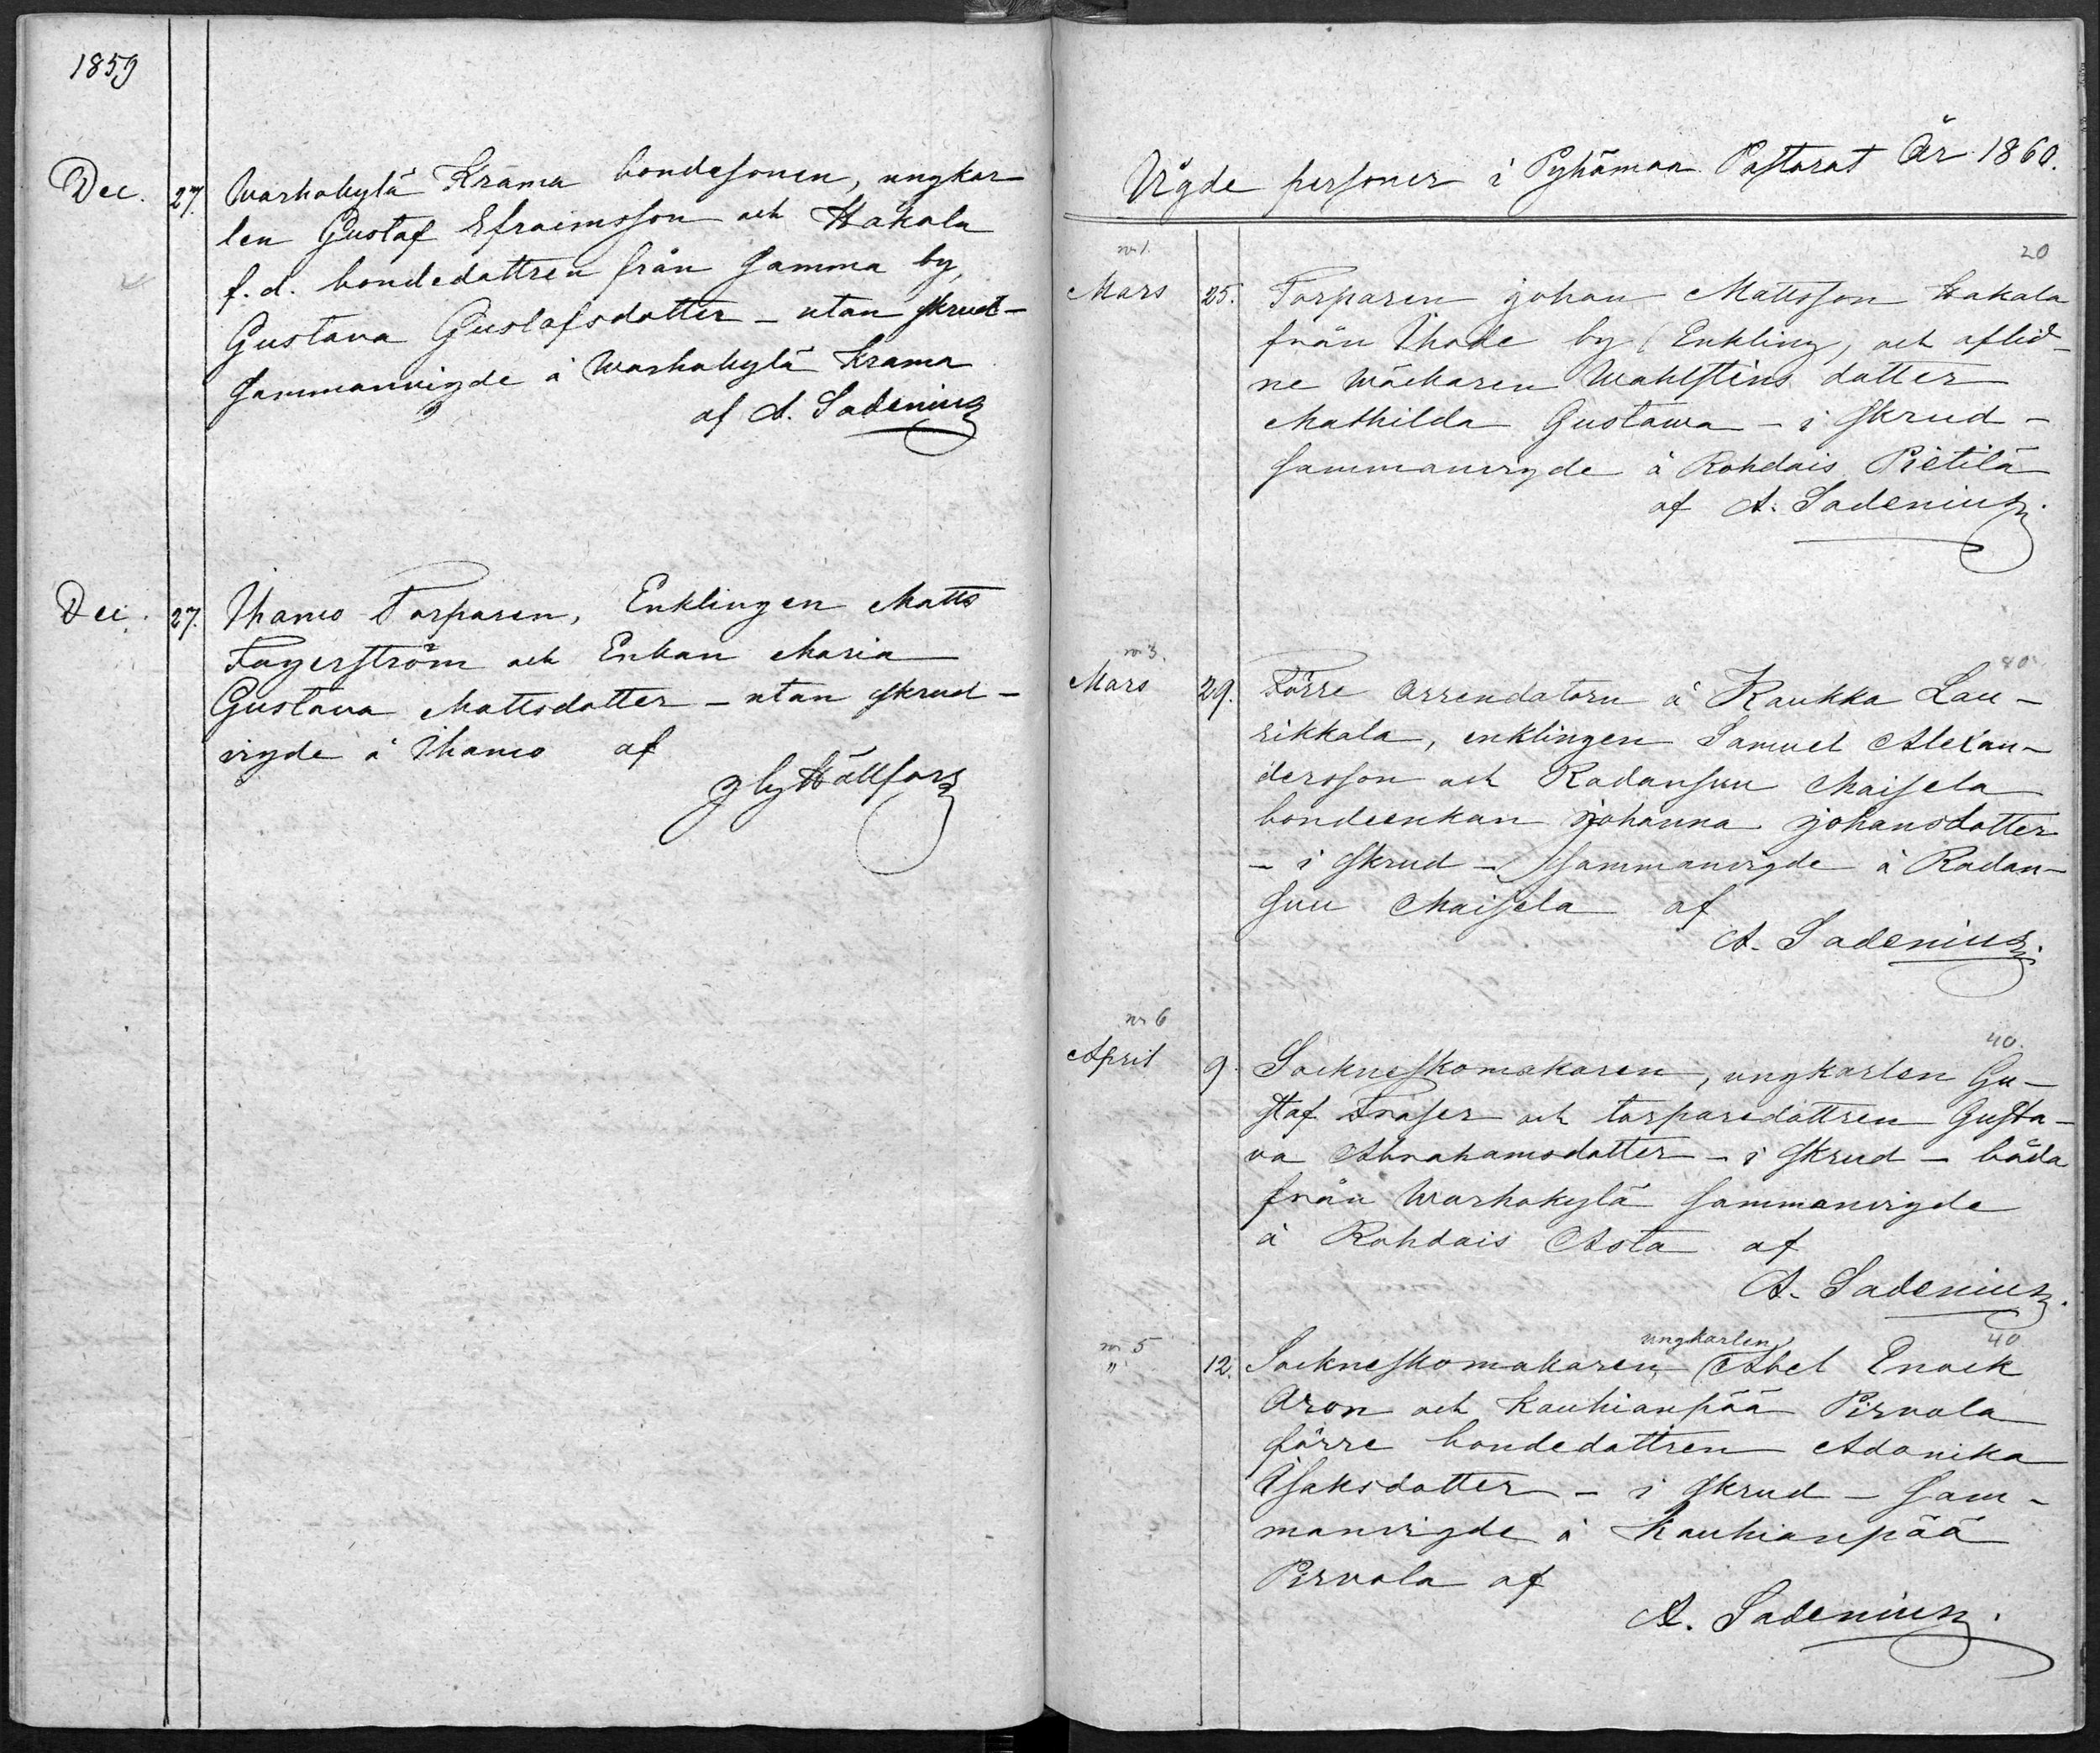 1859
Dec. 27. Warhokylä Krama bondesonen, ungkar-
len Gustaf Efraimsson och Hakala
f.d. bondedottren från samma by,
Gustava Gustafsdotter - utan skrud -
sammanvigde å Warhokylä Krama
af A. Sadenius
Dec. 27. Ihamo Torparen, Enklingen Matts
Fagerström och Enkan Maria
Gustava Mattsdotter - utan skrud -
vigde å Ihamo af
Hällfors
Vigde personer i Pyhämaa Pastorat År 1860.
nr 1. 20
Mars 25. Torparen Johan Mattsson Hakala
från Ihode by (Enkling) och aflid-
ne Wäckaren Wahlstens dotter
Mathilda Gustawa - i skrud -
sammanvigde å Rohdais Pietilä
af A. Sadenius.
nr 3. 40
Mars 29. Förre arrendatorn å Kaukka Lau-
rikkala, enklingen Samuel Alexan-
dersson och Radansuu Maisela
bondeenkan Johanna Johansdotter
- i skrud - sammanvigde å Radan-
suu Maisela af
A. Sadenius.
nr 6 40.
April 9. Sockneskomakaren, ungkarlen Gu-
staf Fraser och torparedottren Gusta-
va Abrahamsdotter - i skrud - båda
från Warhokylä sammanvigde
å Rohdais Asta af
A. Sadenius.
nr 5 ungkarlen 40
" 12. Sockneskomakaren, Abel Enock
Aron och Kauhianpää Pirvola
förre bondedottren Adonika
Isaksdotter - i skrud - sam-
manvigde å Kauhianpää
Pirvola af
A. Sadenius.